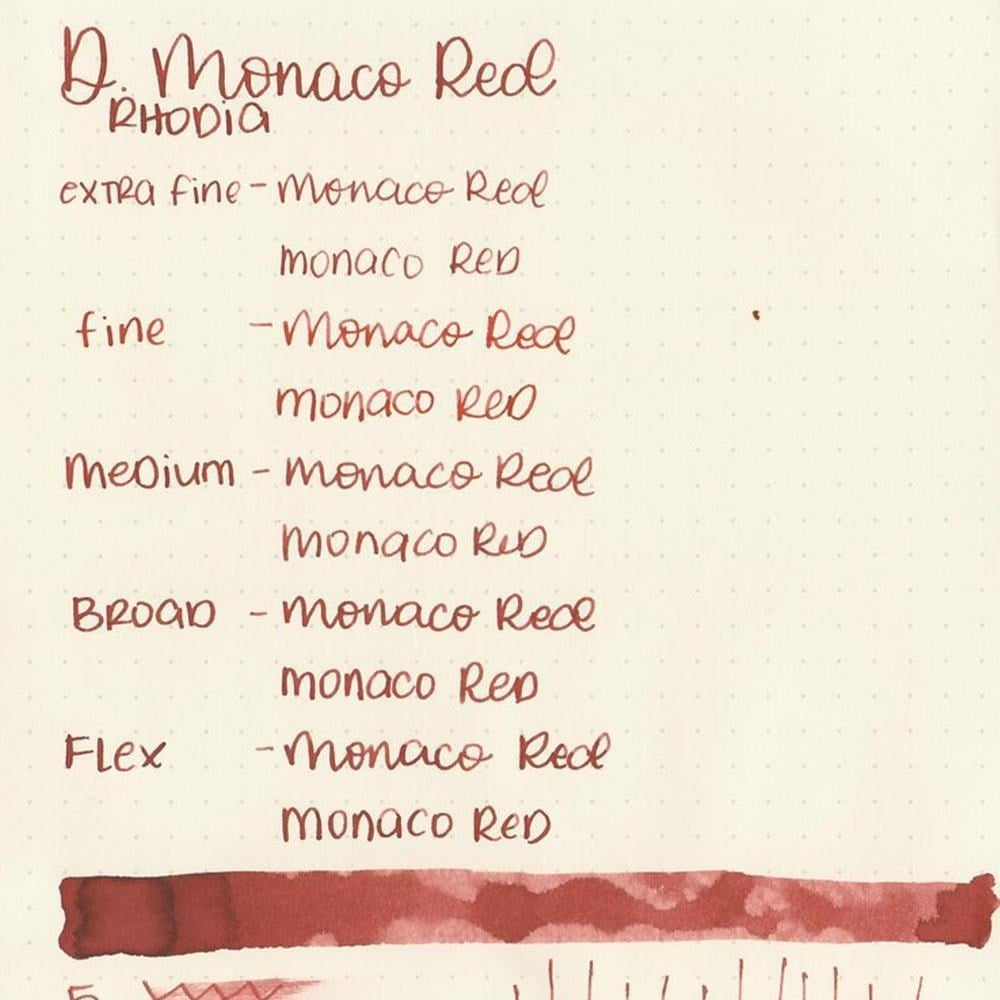 D. Monaco Red
RHODIA
extra fine - Monaco Red
monaco Red
fine - Monaco Red
monaco Red
Medium - Monaco Red
Monaco Red
BROAD - Monaco Red
monaco Red
Flex - Monaco Red
monaco Red
5